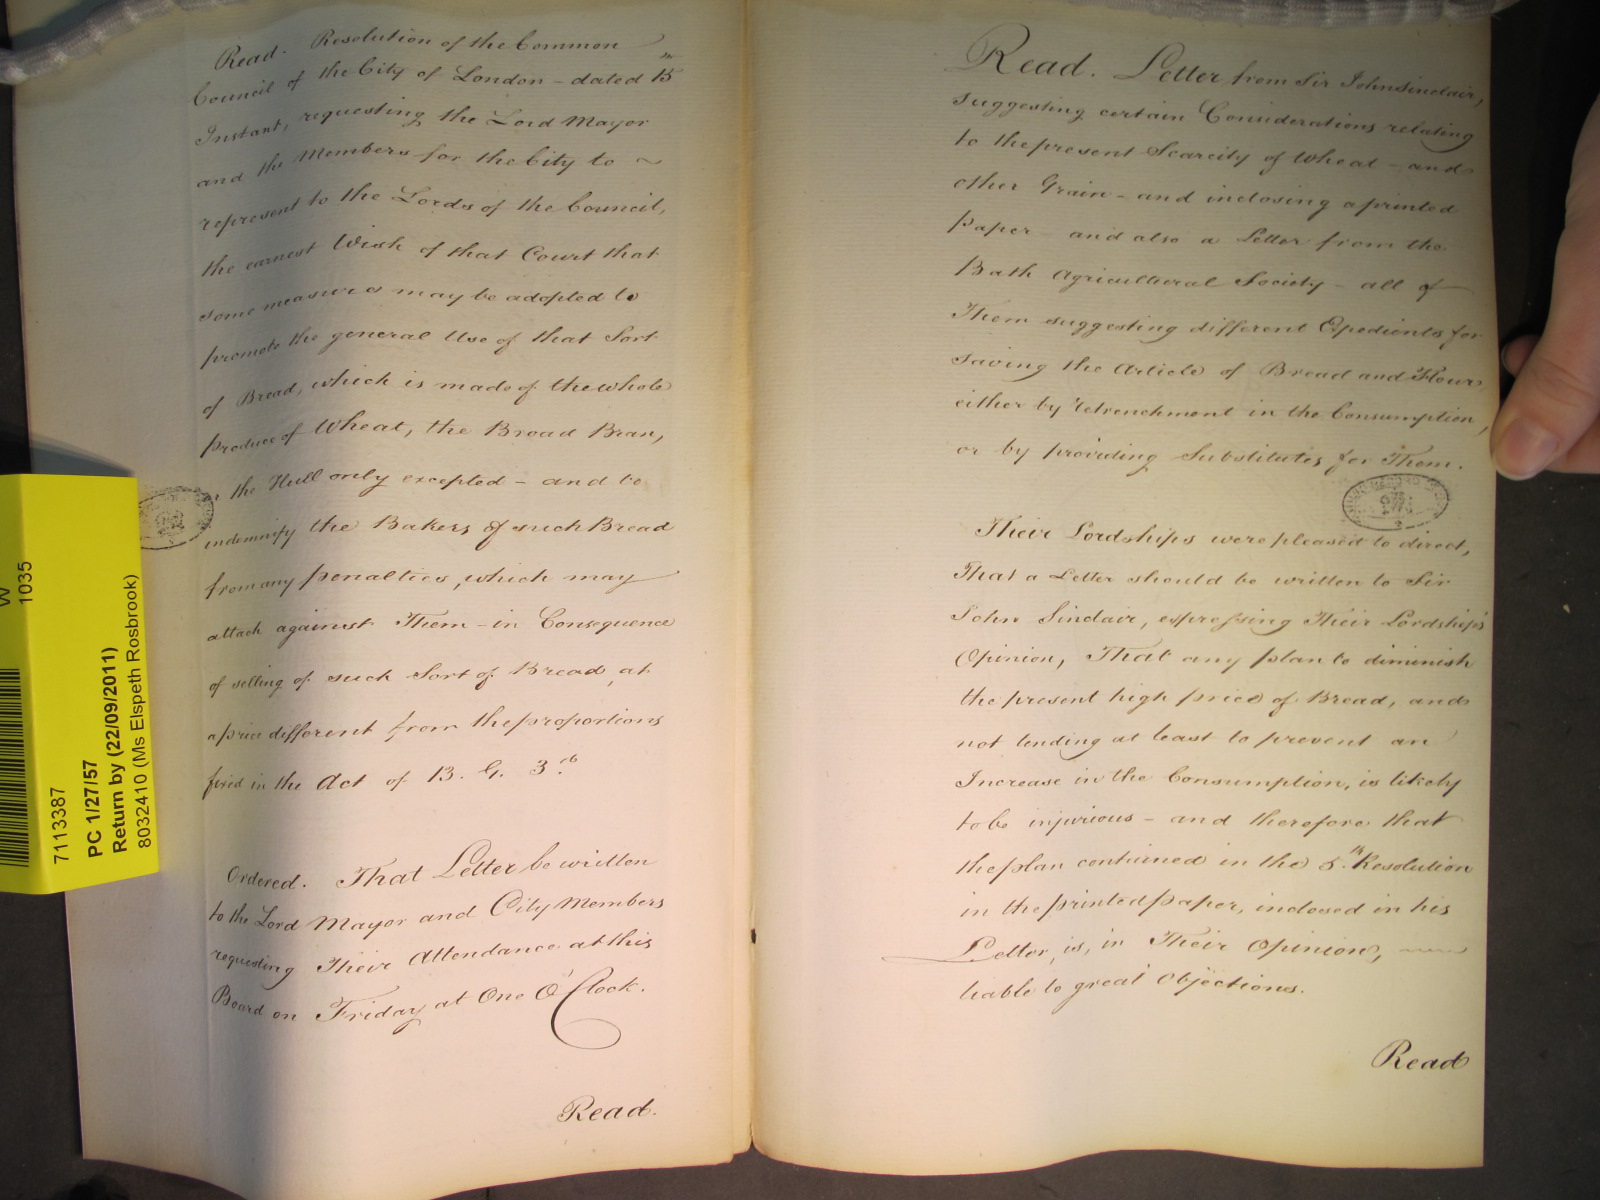 Read. Resolution of the Common
Council of the City of London - dated 15th
Instant, requesting the Lord Mayor
and the Members for the City to ~
represent to the Lords of the Council,
the earnest Wish of that Court that
some measures may be adopted to
promote the general Use of that Sort
of Bread, which is made of the whole
produce of Wheat, the Broad Bran,
or the Hull only excepted - and to
indemnify the Bakers of such Bread
from any penalties, which may
attach against Them - in Consequence
of selling of such Sort of Bread, at
a price different from the proportions
fixed in the Act of 13. G. 3.rd
Ordered. That Letter be written
to the Lord Mayor and City Members
requesting Their Attendance at this
Board on Friday at One O'Clock.
Read.
Read. Letter from Sir John Sinclair,
suggesting certain Considerations relating
to the present Scarcity of Wheat - and
other Grain - and inclosing a printed
paper - and also a Letter from the
Bath Agricultural Society - all of
Them suggesting different Expedients for
saving the Article of Bread and Flour
either by retrenchment in the Consumption,
or by providing Substitutes for Them.
Their Lordships were pleased to direct,
That a Letter should be written to Sir
John Sinclair, expressing Their Lordships
Opinion, That any plan to diminish
the present high price of Bread, and
not tending at least to prevent an
Increase in the Consumption, is likely
to be injurious - and therefore that
the plan contained in the 5.th Resolution
in the printed paper, inclosed in his
Letter, is, in Their Opinion,
liable to great Objections.
Read
W
1035
7113387
PC 1/27/57
Return by (22/09/2011)
8032410 (Ms Elspeth Rosbrook)